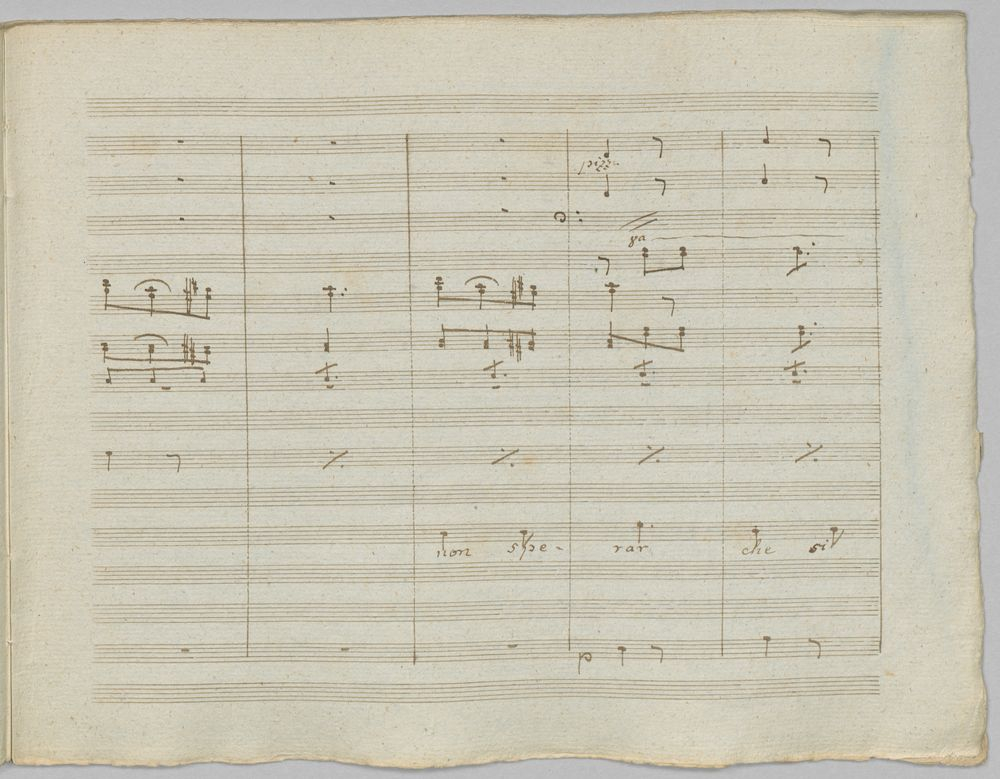 pizz.
8a
non spe- rar che si
p